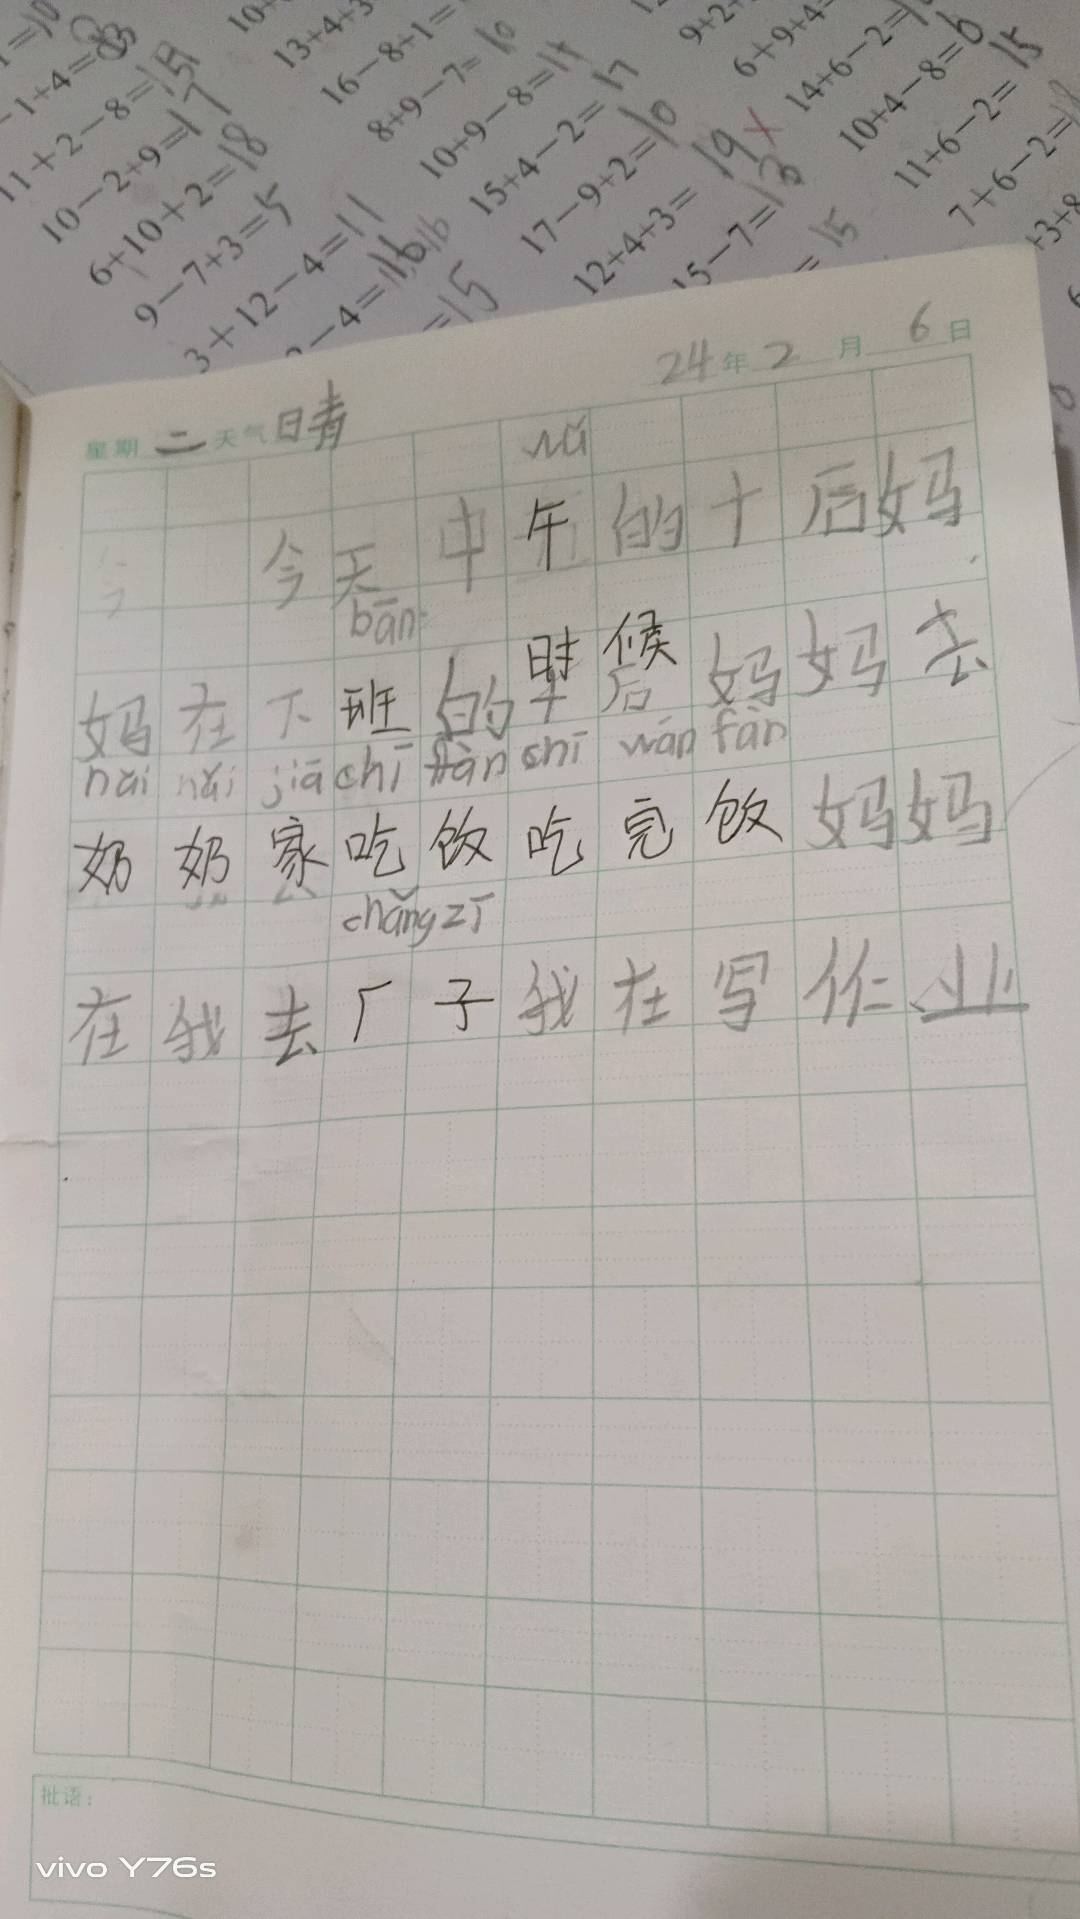 11+2-8=15
10-2+9=17
6+10+2=18
9-7+3=5
3+12-4=11
-4=16 16
=15
16-8+1=
8+9-7=10
10+9-8=11
15+4-2=17
17-9+2=10
12+4+3=19
15-7=13
=15
14+6-2=
10+4-8=6
11+6-2=15
7+6-2=
星期 二 天气 晴 24 年 2 月 6 日
wǔ
今天中午的十后妈
bān
时候
妈在下班的十后妈妈去
nǎi nǎi jiā chī fàn chī wán fàn
奶奶家吃饭吃完饭妈妈
chǎng zī
在我去厂子我在写作业
批语：
vivo Y76s